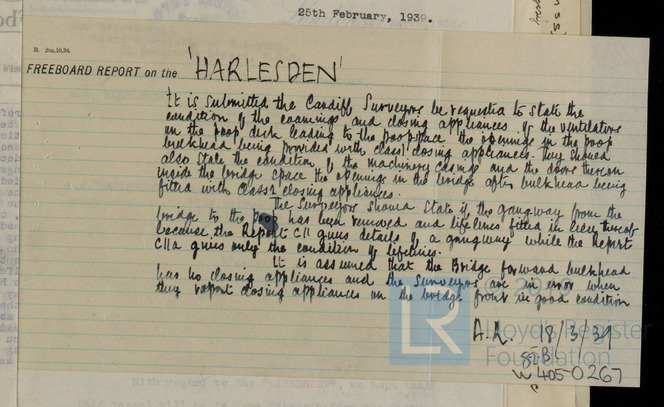 25th February, 1939.
B. 2m.10,38.
FREEBOARD REPORT on the 'HARLESDEN'
It is submitted the Cardiff Surveyors be requested to state the
condition of the coamings and closing appliances of the ventilators
on the poop deck leading to the poop space the openings in the poop
bulkhead being provided with class 1 closing appliances. They should
also state the condition of the machinery casing and the doors thereon
inside the bridge space the openings in the bridge after bulkhead being
fitted with class 2 closing appliances.
The Surveyors should state if the gangway from the
bridge to the poop has been removed and lifelines fitted in lieu thereof
because the Report C11 gives details of a gangway while the Report
C11a gives only the condition of lifelines.
It is assumed that the Bridge forward bulkhead
has no closing appliances and the Surveyors are in error when
they report closing appliances on the bridge front in good condition
A.L. 18/3/39
LR
Lloyd's Register
Foundation
W405-0267
With regard to the "HARLESDEN", we hope that